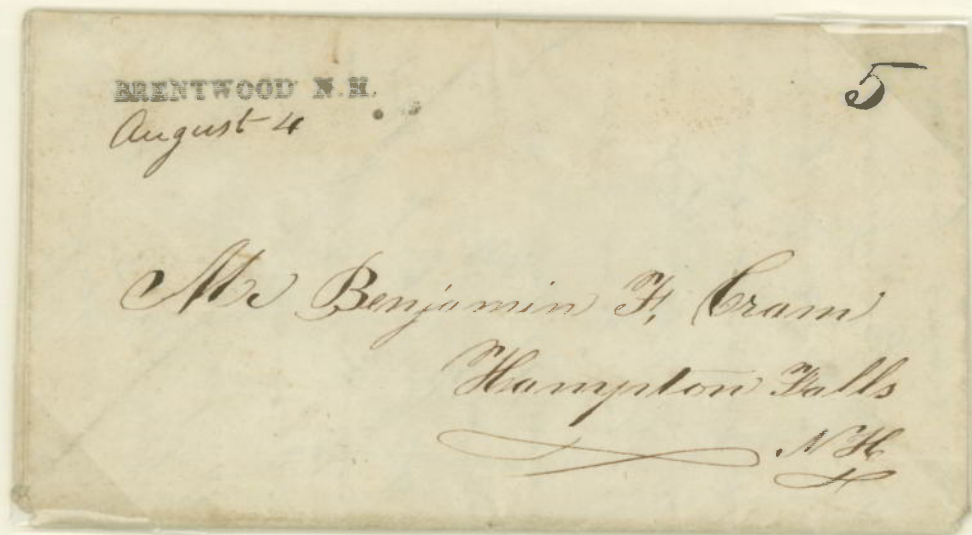 BRENTWOOD N.H.
August 4
5
Mr Benjamin F. Cram
Hampton Falls
NH